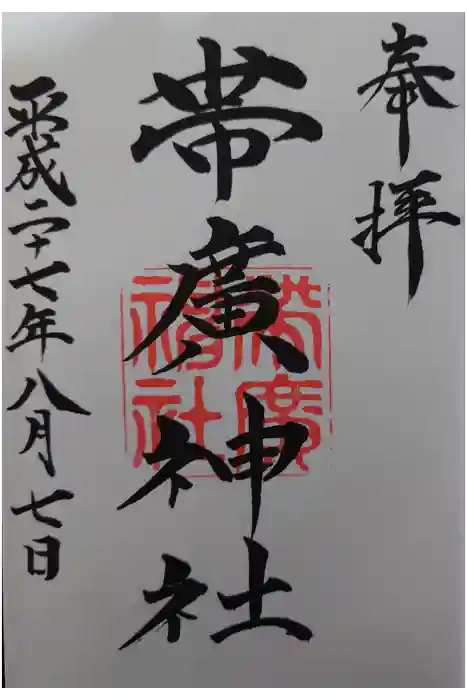 奉拝
帯廣神社
帯廣
神社
平成二十七年八月七日